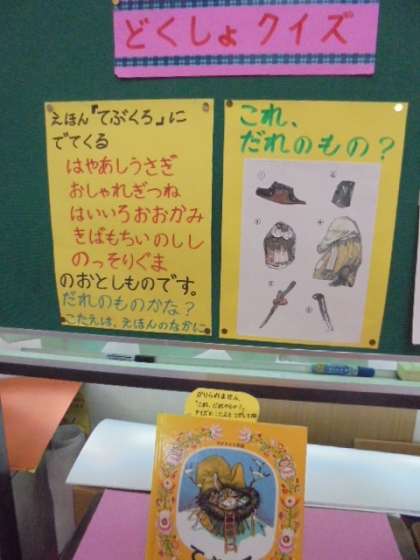 どくしょクイズ
えほん「てぶくろ」に
でてくる
はやあしうさぎ
おしゃれぎつね
はいいろおおかみ
きばもちいのしし
のっそりぐま
のおとしものです。
だれのものかな？
こたえは、えほんのなかに
これ、
だれのもの？
①
かりられません